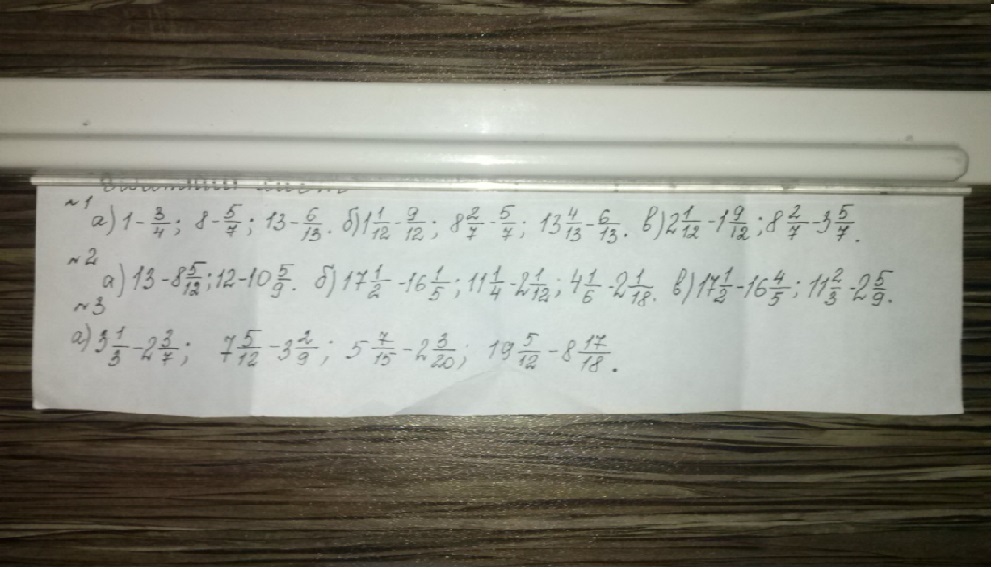 №1
а) 1 - 3/4; 8 - 5/7; 13 - 6/13. б) 1 1/12 - 9/12; 8 2/7 - 5/7; 13 4/13 - 6/13. в) 2 1/12 - 1 9/12; 8 2/7 - 3 5/7.
№2
а) 13 - 8 5/12; 12 - 10 5/9. б) 17 1/2 - 16 1/5; 11 1/4 - 2 1/12; 4 1/6 - 2 1/18. в) 17 1/2 - 16 4/5; 11 2/3 - 2 5/9.
№3
а) 3 1/3 - 2 3/7; 7 5/12 - 3 2/9; 5 7/15 - 2 3/20; 19 5/12 - 8 17/18.